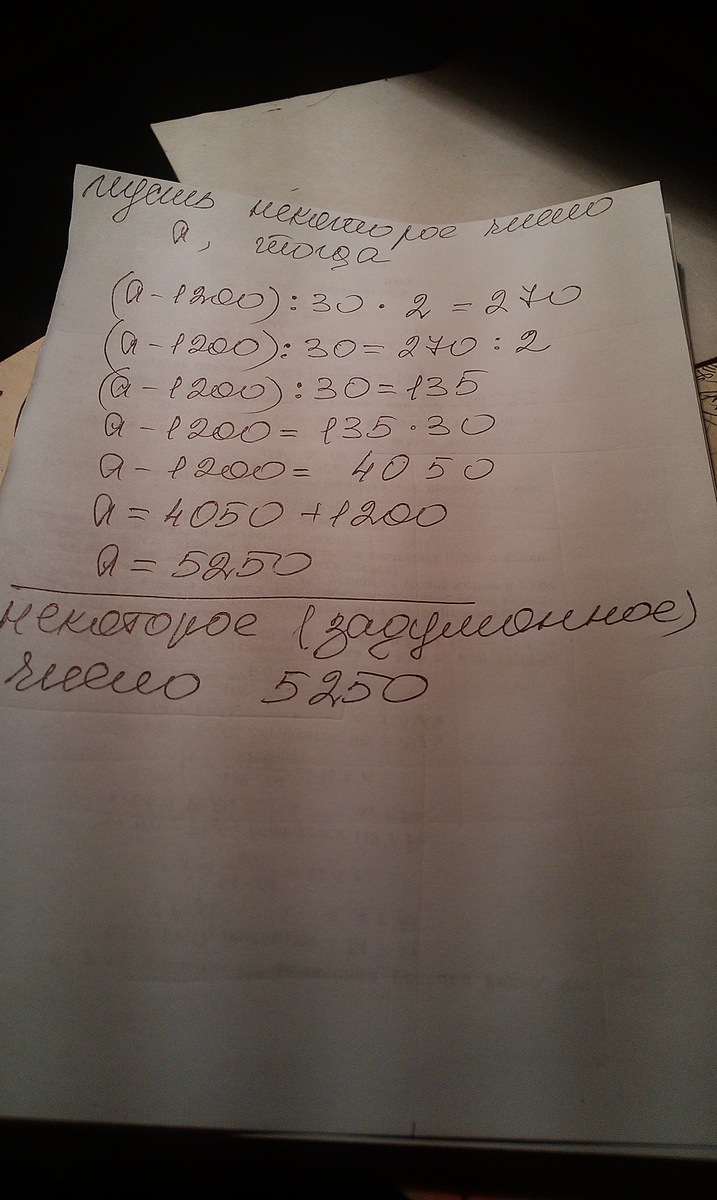 пусть некоторое число
а, тогда
(а-1200):30·2=270
(а-1200):30=270:2
(а-1200):30=135
а-1200=135·30
а-1200= 4050
а=4050+1200
а=5250
некоторое (задуманное)
число 5250